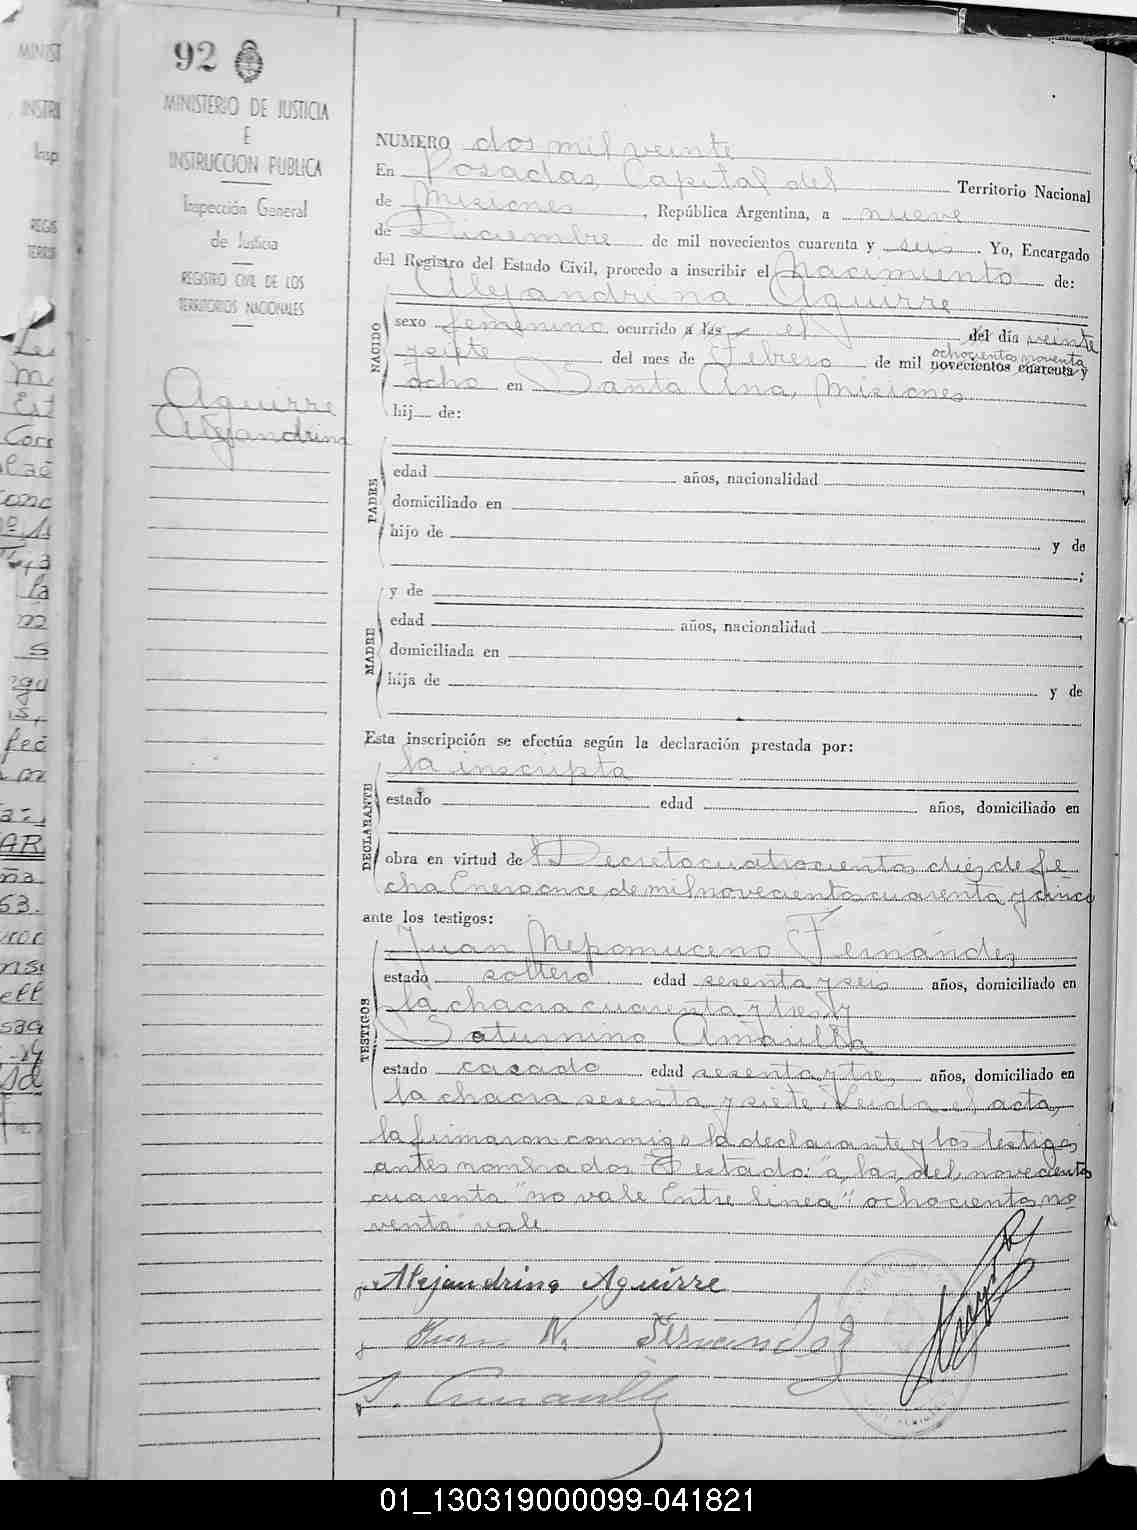 92
MINISTERIO DE JUSTICIA
E
INSTRUCCION PUBLICA
Inspección General
de Justicia
REGISTRO CIVIL DE LOS
TERRITORIOS NACIONALES
Aguirre
Alejandrina
NUMERO dos mil veinte
En Posadas, Capital del Territorio Nacional
de Misiones, República Argentina, a nueve
de Diciembre de mil novecientos cuarenta y seis. Yo, Encargado
del Registro del Estado Civil, procedo a inscribir el Nacimiento de:
Alejandrina Aguirre
NACIDO
sexo femenino ocurrido a las el del día veinte
y siete del mes de Febrero de mil ochocientos noventa novecientos cuarenta y
ocho en Santa Ana, Misiones
hij de:
PADRE
edad años, nacionalidad
domiciliado en
hijo de y de
;
MADRE
y de
edad años, nacionalidad
domiciliada en
hija de y de
Esta inscripción se efectúa según la declaración prestada por:
DECLARANTE
la inscripta
estado edad años, domiciliado en
obra en virtud de Decreto cuatrocientos diez de fe
cha Enero once de mil novecientos cuarenta y cinco
ante los testigos:
TESTIGOS
Juan Nepomuceno Fernández
estado soltero edad sesenta y seis años, domiciliado en
la chacra cuarenta y tres, y
Saturnino Amarilla
estado casado edad sesenta y tres, años, domiciliado en
la chacra sesenta y siete. Leida el acta,
la firmaron conmigo la declarante y los testigos
antes nombrados. T estado: "a las, del, novecientos
cuarenta" no vale. Entre linea: "ochocientos no
venta" vale.
Alejandrina Aguirre
Juan N. Fernandez
S. Amarilla
01_130319000099-041821